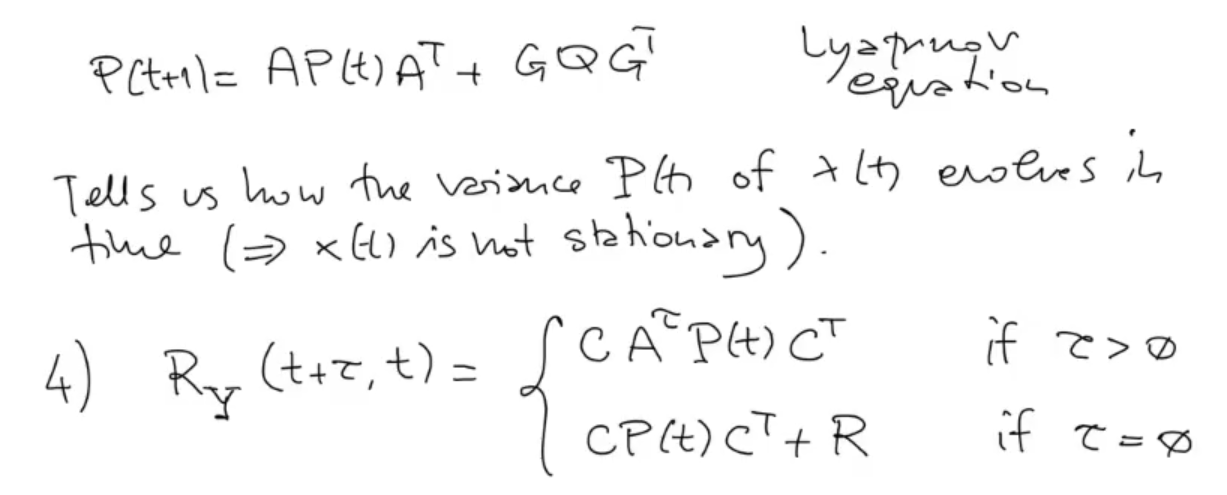 P(t+1)= AP(t)Aᵀ + GQGᵀ Lyapunov
equation
Tells us how the variance P(t) of x(t) evolves in
time (⇒ x(t) is not stationary).
4) R_y (t+τ, t) = { CA^τ P(t) Cᵀ if τ>0
CP(t)Cᵀ + R if τ=0